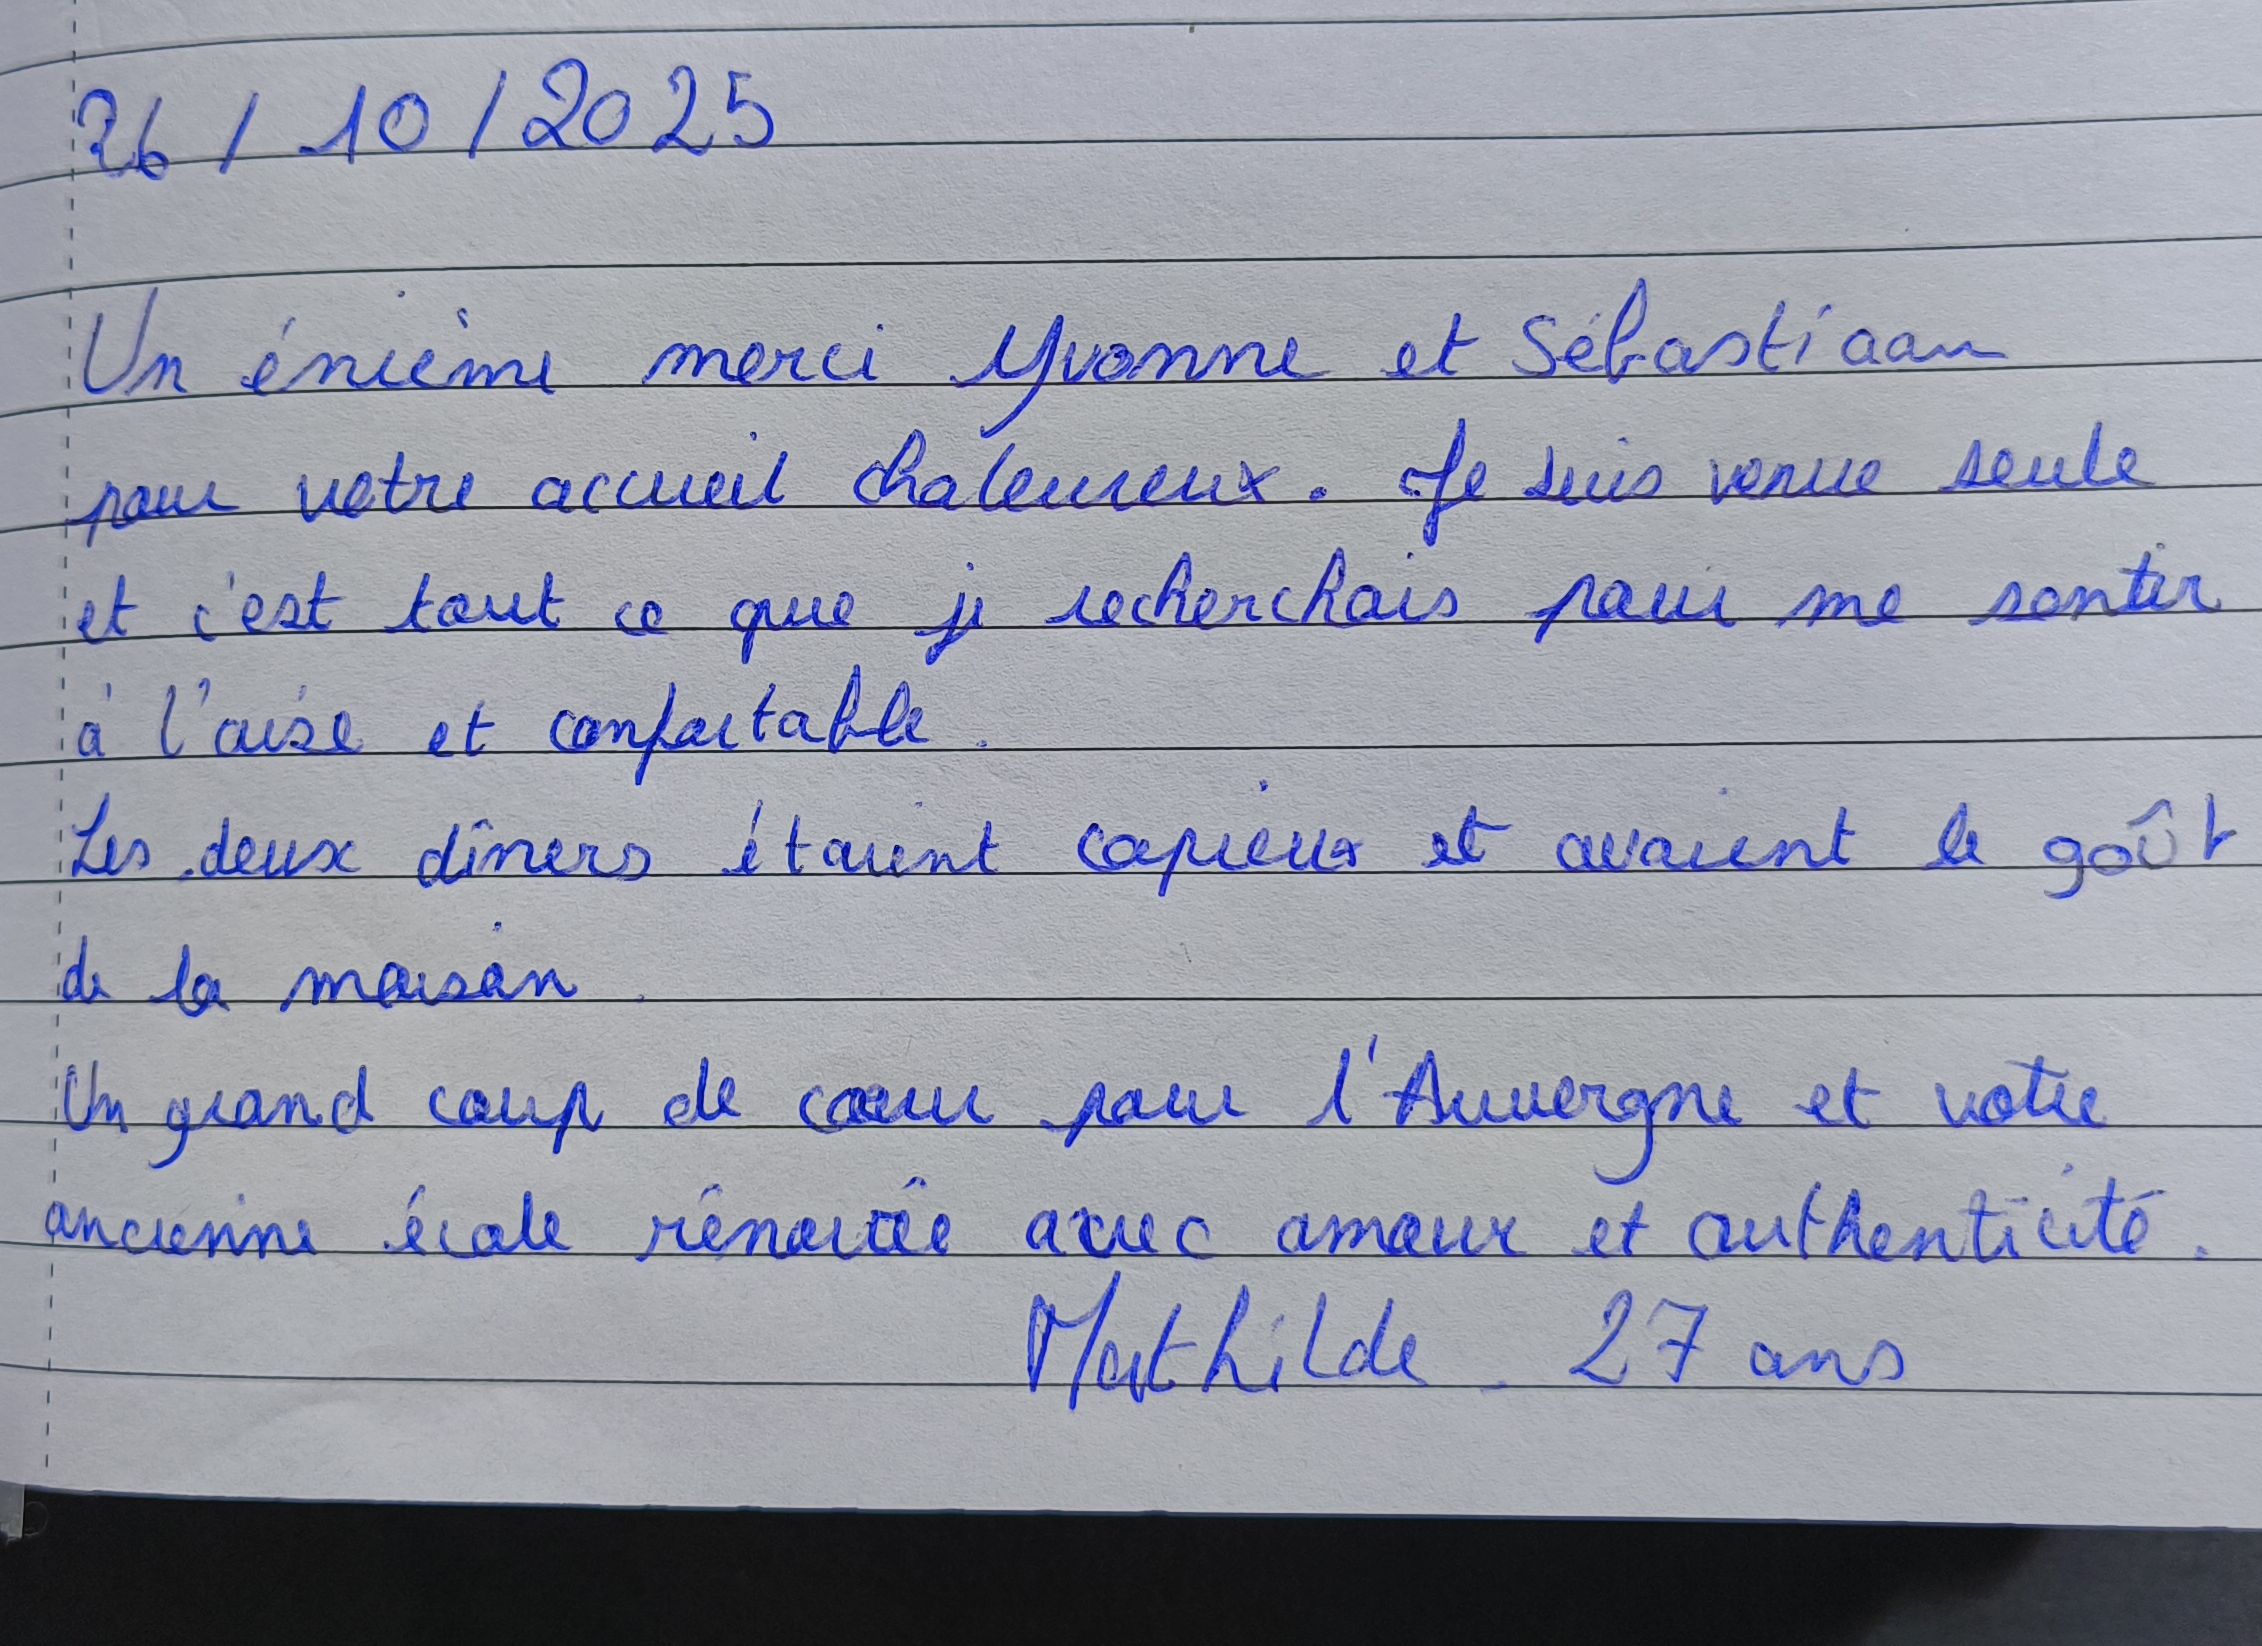 26/10/2025
Un énième merci Yvonne et Sébastiaan
pour votre accueil chaleureux. Je suis venue seule
et c'est tout ce que je recherchais pour me sentir
à l'aise et confortable.
Les deux dîners étaient copieux et avaient le goût
de la maison.
Un grand coup de cœur pour l'Auvergne et votre
ancienne école rénovée avec amour et authenticité.
Mathilde - 27 ans